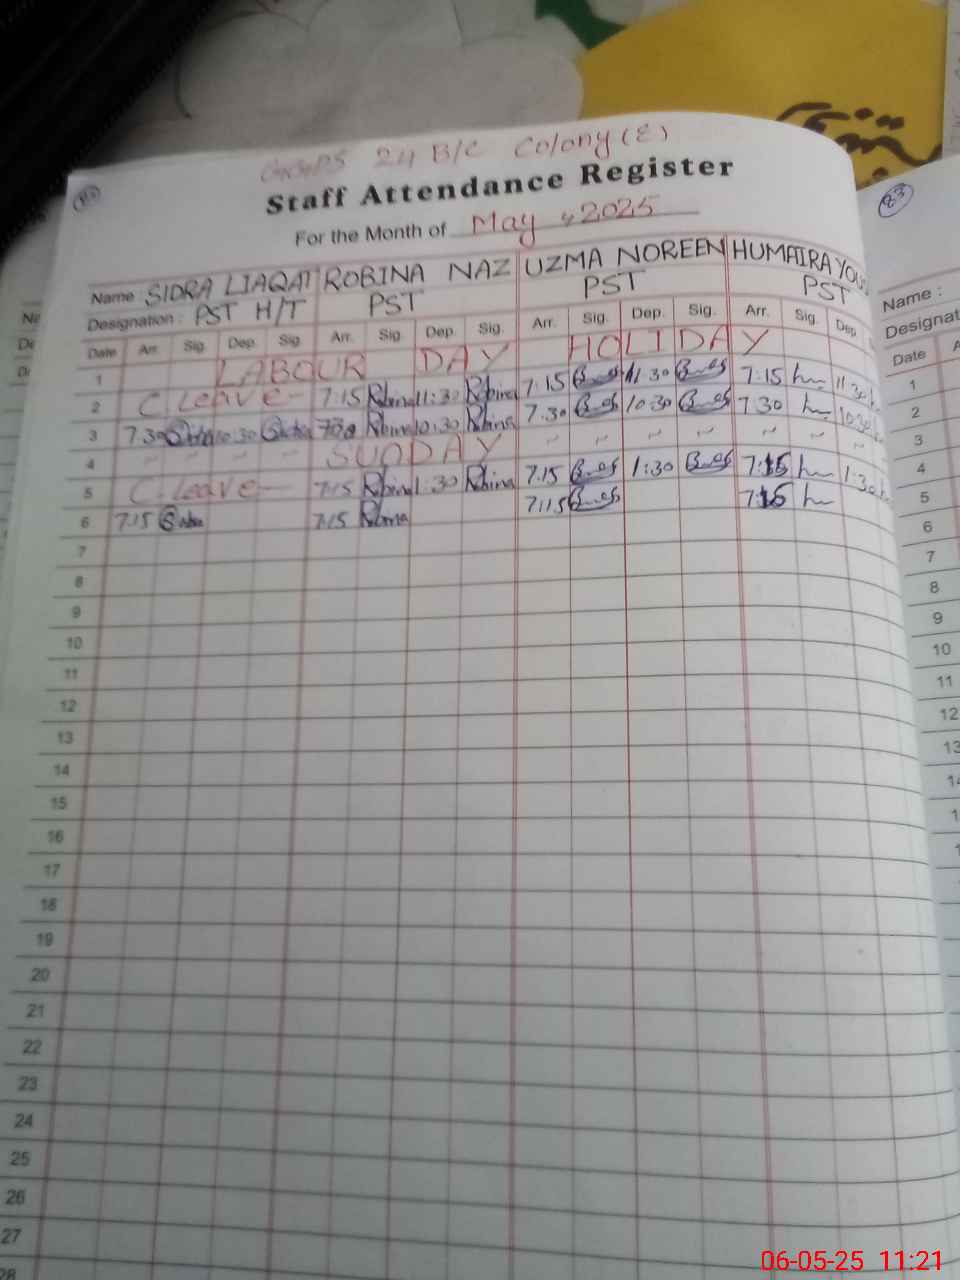 24 B/C Colony (E)
Staff Attendance Register
83
For the Month of May, 2025
Name : SIDRA LIAQAT ROBINA NAZ UZMA NOREEN HUMAIRA
Designation : PST H/T PST PST PST
Date Arr. Sig. Dep. Sig. Arr. Sig. Dep. Sig. Arr. Sig. Dep. Sig. Arr. Sig. Dep.
1 LABOUR DAY HOLIDAY
2 C. Leave 7:15 Robina 11:30 Robina 7:15 11:30 7:15 11:30
3 7.30 10:30 Robina 10:30 Robina 7.30 10:30 7 30 10:30
4 SUNDAY
5 C. Leave 7:15 Robina 1:30 Robina 7.15 1:30 7:15 1:30
6 7:15 7:15 Robina 7:15 7:15
7
8
9
10
11
12
13
14
15
16
17
18
19
20
21
22
23
24
25
26
27
28
Name :
Date
1
2
3
4
5
6
7
8
9
10
11
12
13
06-05-25 11:21